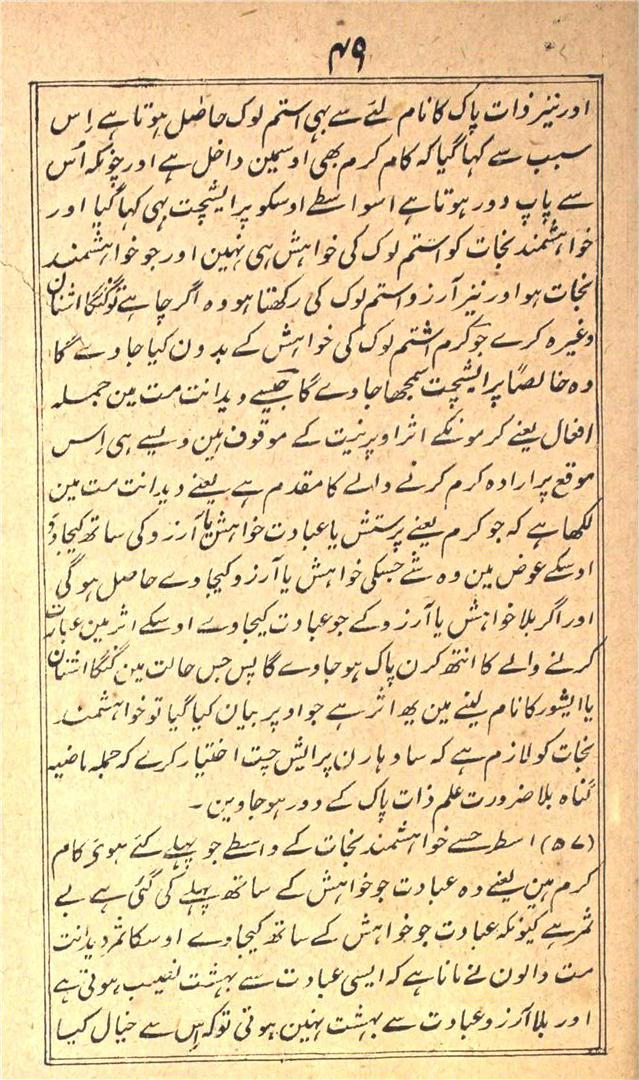 ۴۹
اور نیز ذات پاک کا نام لئے سے بہی استم لوک حاصل ہوتا ہے اِس
سبب سے کہا گیا کہ کام کرم بھی اوسمین داخل ہے اور چونکہ اُس
سے پاپ دور ہوتا ہے اسواسطے اوسکو پرایشچت بہی کہا گیا اور
خواہشمند نجات کو استم لوک کی خواہش ہی نہین اور جو خواہشمند
نجات ہو اور نیز آرزو استم لوک کی رکھتا ہو وہ اگر چاہے تو گنگا اشنان
وغیرہ کرے جو کرم اشتم لوک کی خواہش کے بدون کیا جاوے گا
وہ خالصاً پرایشچت سمجھا جاوے گا جیسے ویدانت مت مین جملہ
افعال یعنے کرمونکے اثر اوپر نیت کے موقوف ہین ویسے ہی اِس
موقع پر ارادہ کرم کرنے والے کا مقدم ہے یعنے ویدانت مت مین
لکھا ہے کہ جو کرم یعنے پرستش یا عبادت خواہش یا آرزو کی ساتھ کیجاوے
اوسکے عوض مین وہ شے جسکی خواہش یا آرزو کیجاوے حاصل ہوگی
اور اگر بلا خواہش یا آرزو کے جو عبادت کیجاوے اوسکے اثر مین عبادت
کرنے والے کا انتھ کرن پاک ہو جاوے گا پس جس حالت مین گنگا اشنان
یا ایشور کا نام لینے مین یھ اثر ہے جو اوپر بیان کیا گیا تو خواہشمند
نجات کو لازم ہے کہ سادہارن پرایش چت اختیار کرے کہ جملہ ماضیہ
گناہ بلا ضرورت علم ذات پاک کے دور ہو جاوین ۔
(۵۷) اسطرحسے خواہشمند نجات کے واسطے جو پہلے کئے ہوئ کام
کرم ہین یعنے وہ عبادت جو خواہش کے ساتھ پہلے کی گئی ہے بے
ثمر ہے کیونکہ عبادت جو خواہش کے ساتھ کیجاوے اوسکا ثمر ویدانت
مت والون نے مانا ہے کہ ایسی عبادت سے بہشت نصیب ہوتی ہے
اور بلا آرزو عبادت سے بہشت نہین ہوتی تو کہ اِس سے خیال کیا